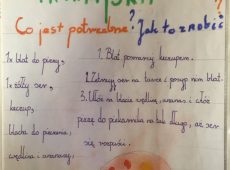 Co jest potrzebne? Jak to zrobić?
1x blat do pizzy,
1x żółty ser,
keczup,
blacha do pieczenia,
wędlina i ananasy.
1. Blat posmaruj keczupem.
2. Zetrzyj ser na tarce i posyp nim blat.
3. Ułóż na blacie wędlinę, ananas i włóż
pizzę do piekarnika na tak długo, aż ser
się rozpuści.